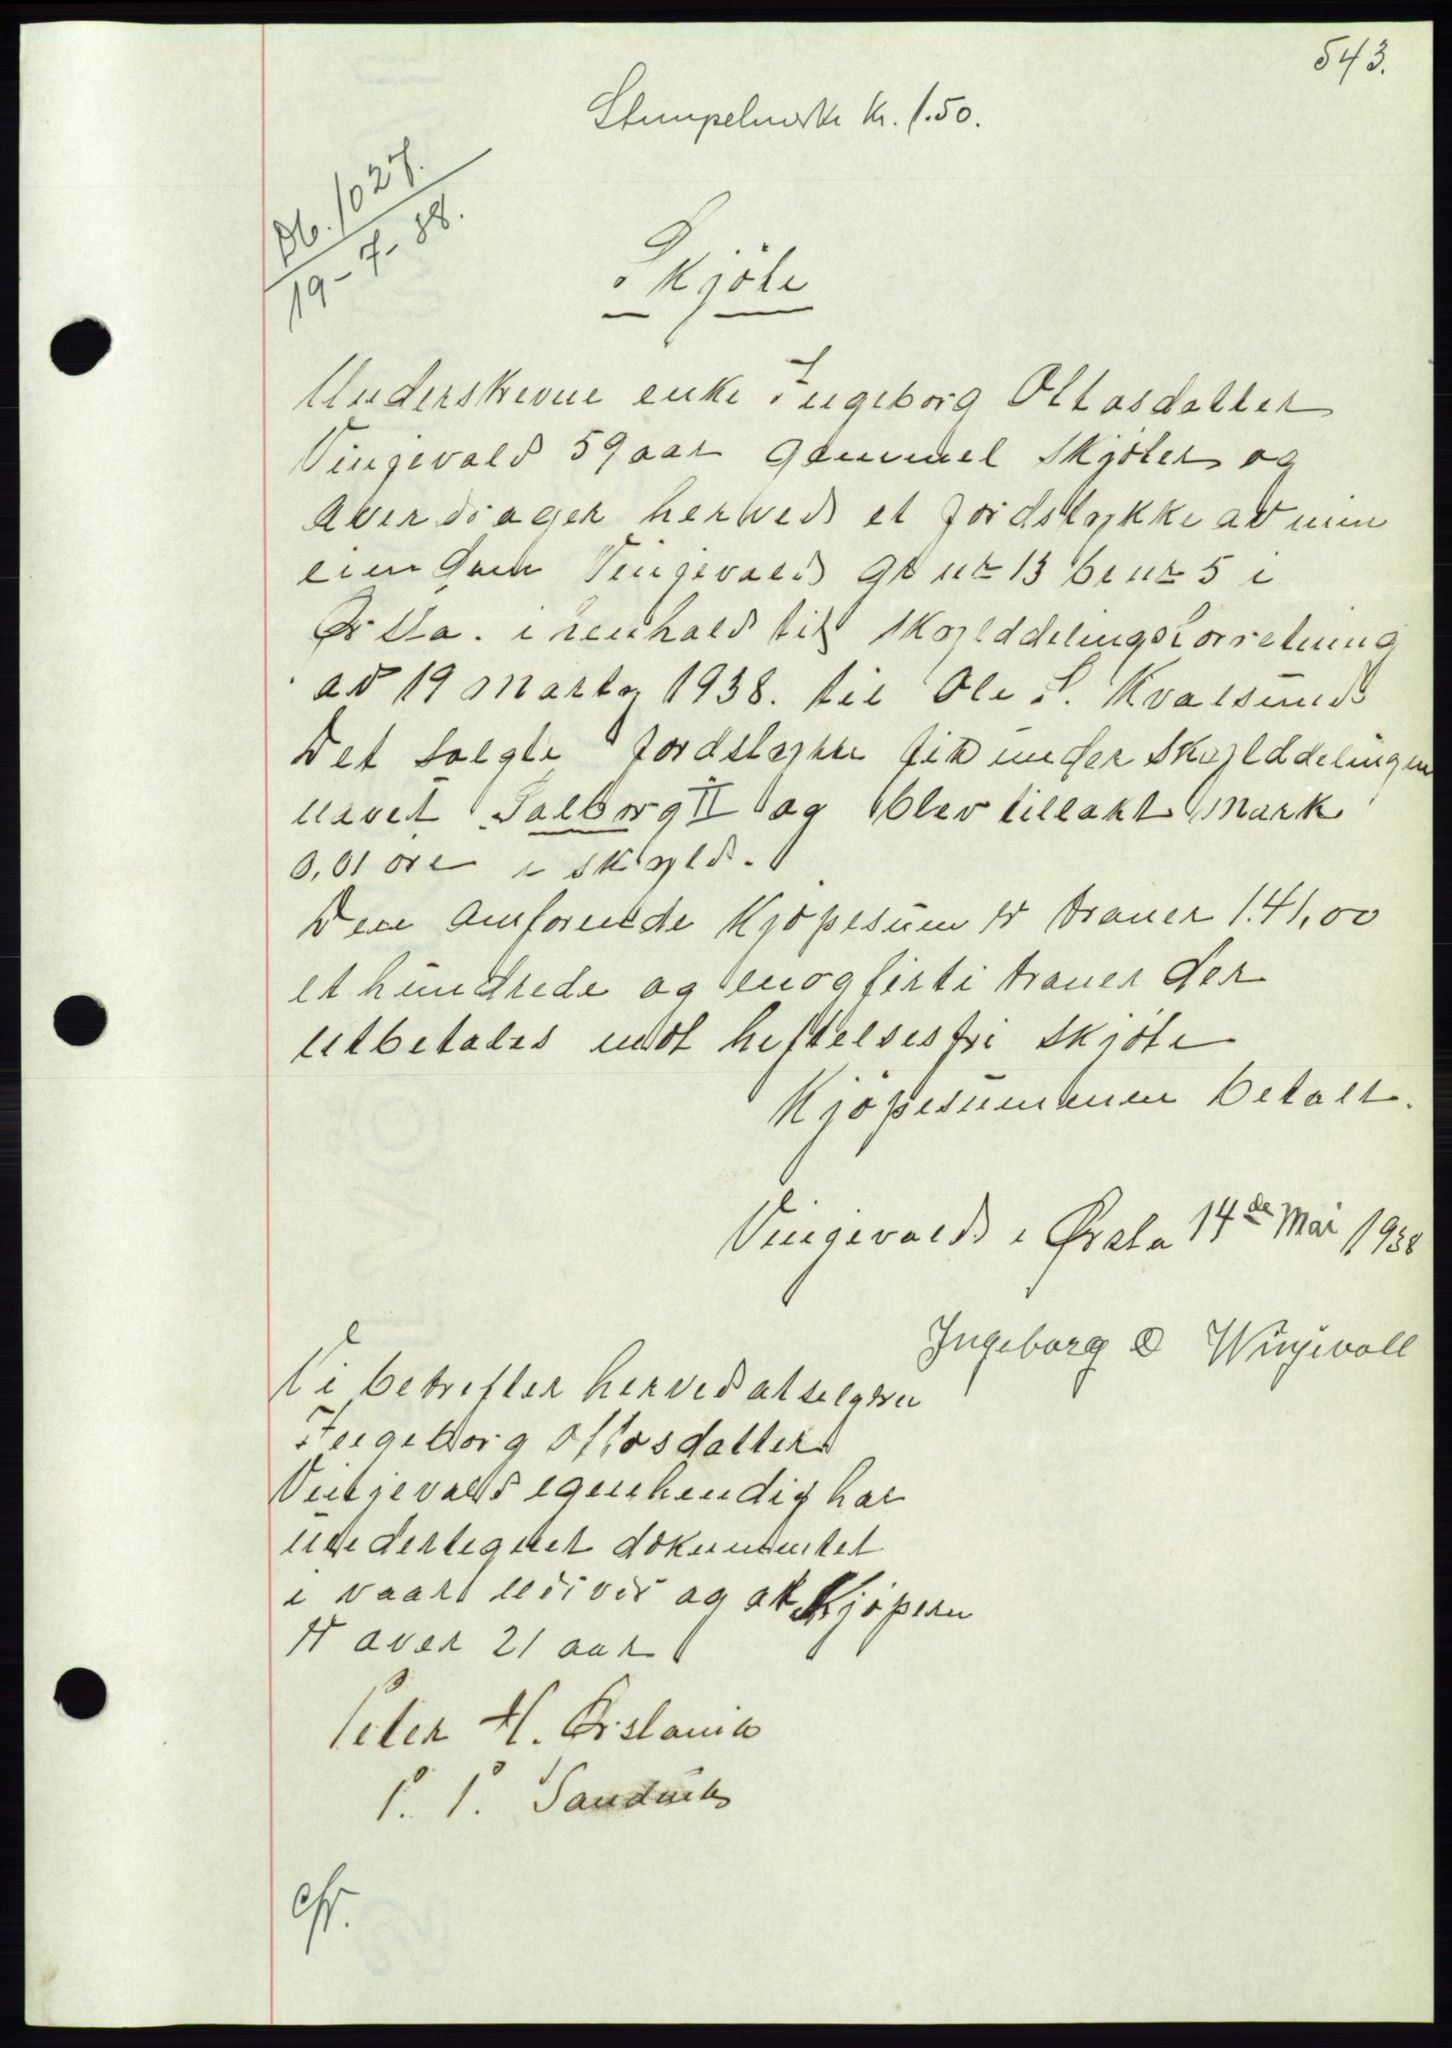 543.
Stempelmerke kr. 1.50.
Db. 1027.
19-7-38.
Skjöte
Underskrevne enke Ingeborg Ottosdatter
Vingevold 59 aar gammel skjöter og
averdrager herved et jordstykke av min
eiendom Vingevold gr nr 13 br nr 5 i
Örsta. i henhold til skylddelingsforretning
av 19 marts 1938. til Ole S. Kvalsund
Det solgte jordstykke fik under skylddelingen
navnet Solborg II og blev tillakt mark
0,01 öre i skyld.
Den omforente kjöpesum er kroner 141,00
et hundrede og enogfirti kroner der
utbetales mot heftelsesfri skjöte
Kjöpesummen betalt.
Vingevold i Örsta 14de Mai 1938
Ingeborg O Wingevoll
Vi bekrefter herved at selgeren
Ingeborg Ottosdatter
Vingevold egenhendig har
undertegnet dokumentet
i vaart nærvær og at kjöperen
er over 21 aar
Peter H. Örstavik
P. P. Sandvik